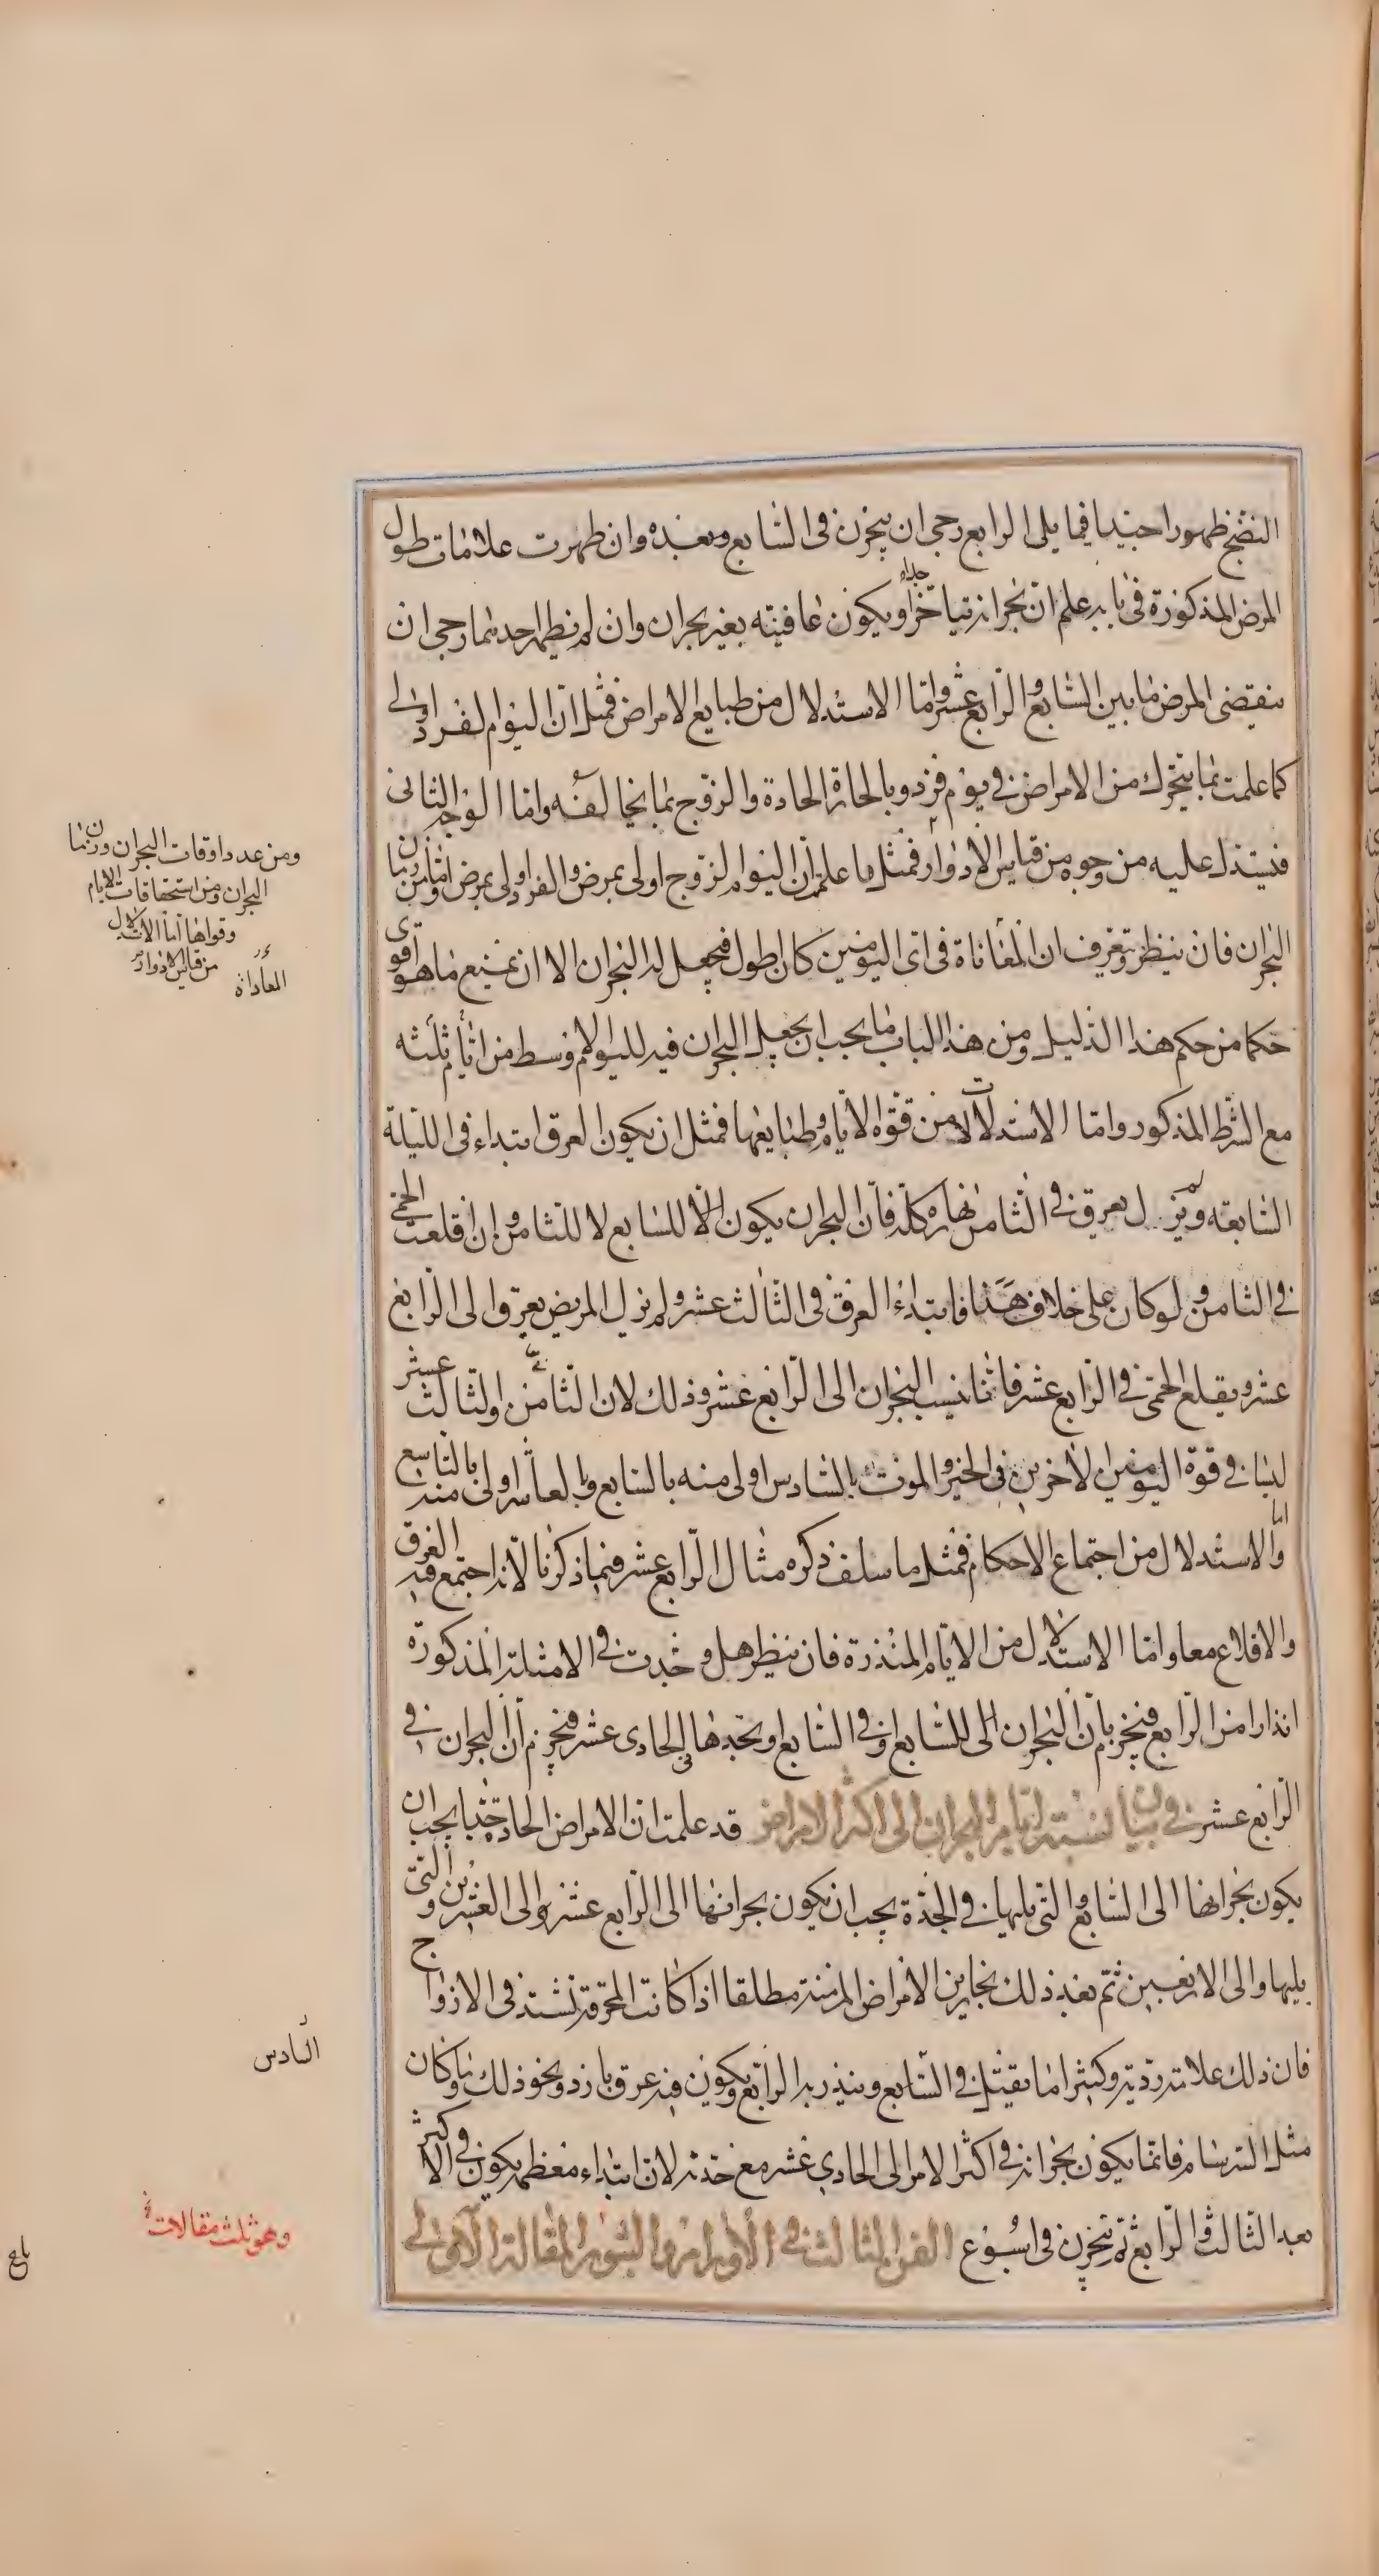 النضج ظهورا جيدا فيما يلى الرابع رجى ان يبحرن فى السابع وبعده وان ظهرت علامات طول
المرض المذكورة فى بابه علم ان بحرانه يتاخر او يكون عافيته بغير بحران وان لم يظهر احدهما رجى ان
جدا
ينقضى المرض ما بين السابع والرابع عشر واما الاستدلال من طبايع الامراض فمثل ان اليوم الفرد اولى
كما علمت بما يتحرك من الامراض فى يوم فرد وبالحارة الحادة والزوج بما يخالفه واما الوجه الثانى
فيستدل عليه من وجوه من قياس الادوار فمثل ما علمت ان اليوم الزوج اولى بمرض والفرد اولى بمرض واما من زمان
البحران فان ينظر وتعرف ان المعاناة فى اى اليومين كان اطول فيجعل له البحران الا ان يمنع ما هو اقوى
حكما من حكم هذا الدليل ومن هذا الباب ما يجب ان يجعل البحران فيه لليوم الاوسط من ايام ثلثه
مع الشرط المذكور واما الاستدلالات من قوة الايام وطبايعها فمثل ان يكون العرق ابتداء فى الليلة
السابعة ولم يزل يعرق فى الثامن نهاره كله فان البحران يكون للسابع لا للثامن وان اقلعت الحمى
فى الثامن ولو كان على خلاف هذا فابتداء العرق فى الثالث عشر ولم يزل المريض يعرق الى الرابع
عشر ويقلع الحمى فى الرابع عشر فانما ينسب البحران الى الرابع عشر وذلك لان الثامن والثالث عشر
ليسا فى قوة اليومين الاخرين فى الخير والموت بالسادس اولى منه بالسابع وبالعاشر اولى منه بالتاسع
واما الاستدلال من اجتماع الاحكام فمثل ما سلف ذكره مثال الرابع عشر فيما ذكرنا لانه اجتمع فيه العرق
والاقلاع معا واما الاستدلال من الايام المنذرة فان ينظر هل وجدت فى الامثلة المذكورة
انذارا من الرابع فيجزم بان البحران الى السابع او فى السابع او تجدها فى الحادى عشر فيجزم ان البحران فى
الرابع عشر فى بيان نسبة ايام البحران الى اكثر الامراض قد علمت ان الامراض الحادة جدا يجب ان
يكون بحرانها الى السابع والتى يليها فى الحدة يجب ان يكون بحرانها الى الرابع عشر والى العشرين والتى
يليها والى الاربعين ثم بعد ذلك بحارين الامراض المزمنة مطلقا اذا كانت المحرقة تشتد فى الازواج
فان ذلك علامة ردية وكثيرا ما يقتل فى السابع وينذر به الرابع ويكون فيه عرق بارد ونحو ذلك وما كان
مثل السرسام فانما يكون بحرانه فى اكثر الامر الى الحادى عشر مع حدته لان ابتداء معظمه يكون فى الاكثر
بعد الثالث والرابع ثم يبحرن فى اسبوع الفن الثالث فى الاورام والبثور المقالة الاولى
ومن عدد اوقات البحران وزمان
البحران ومن استحقاقات الايام
وقواها اما الاستدلال
من قياس الادوار
المعاداة
السادس
وهو ثلث مقالات
بلغ